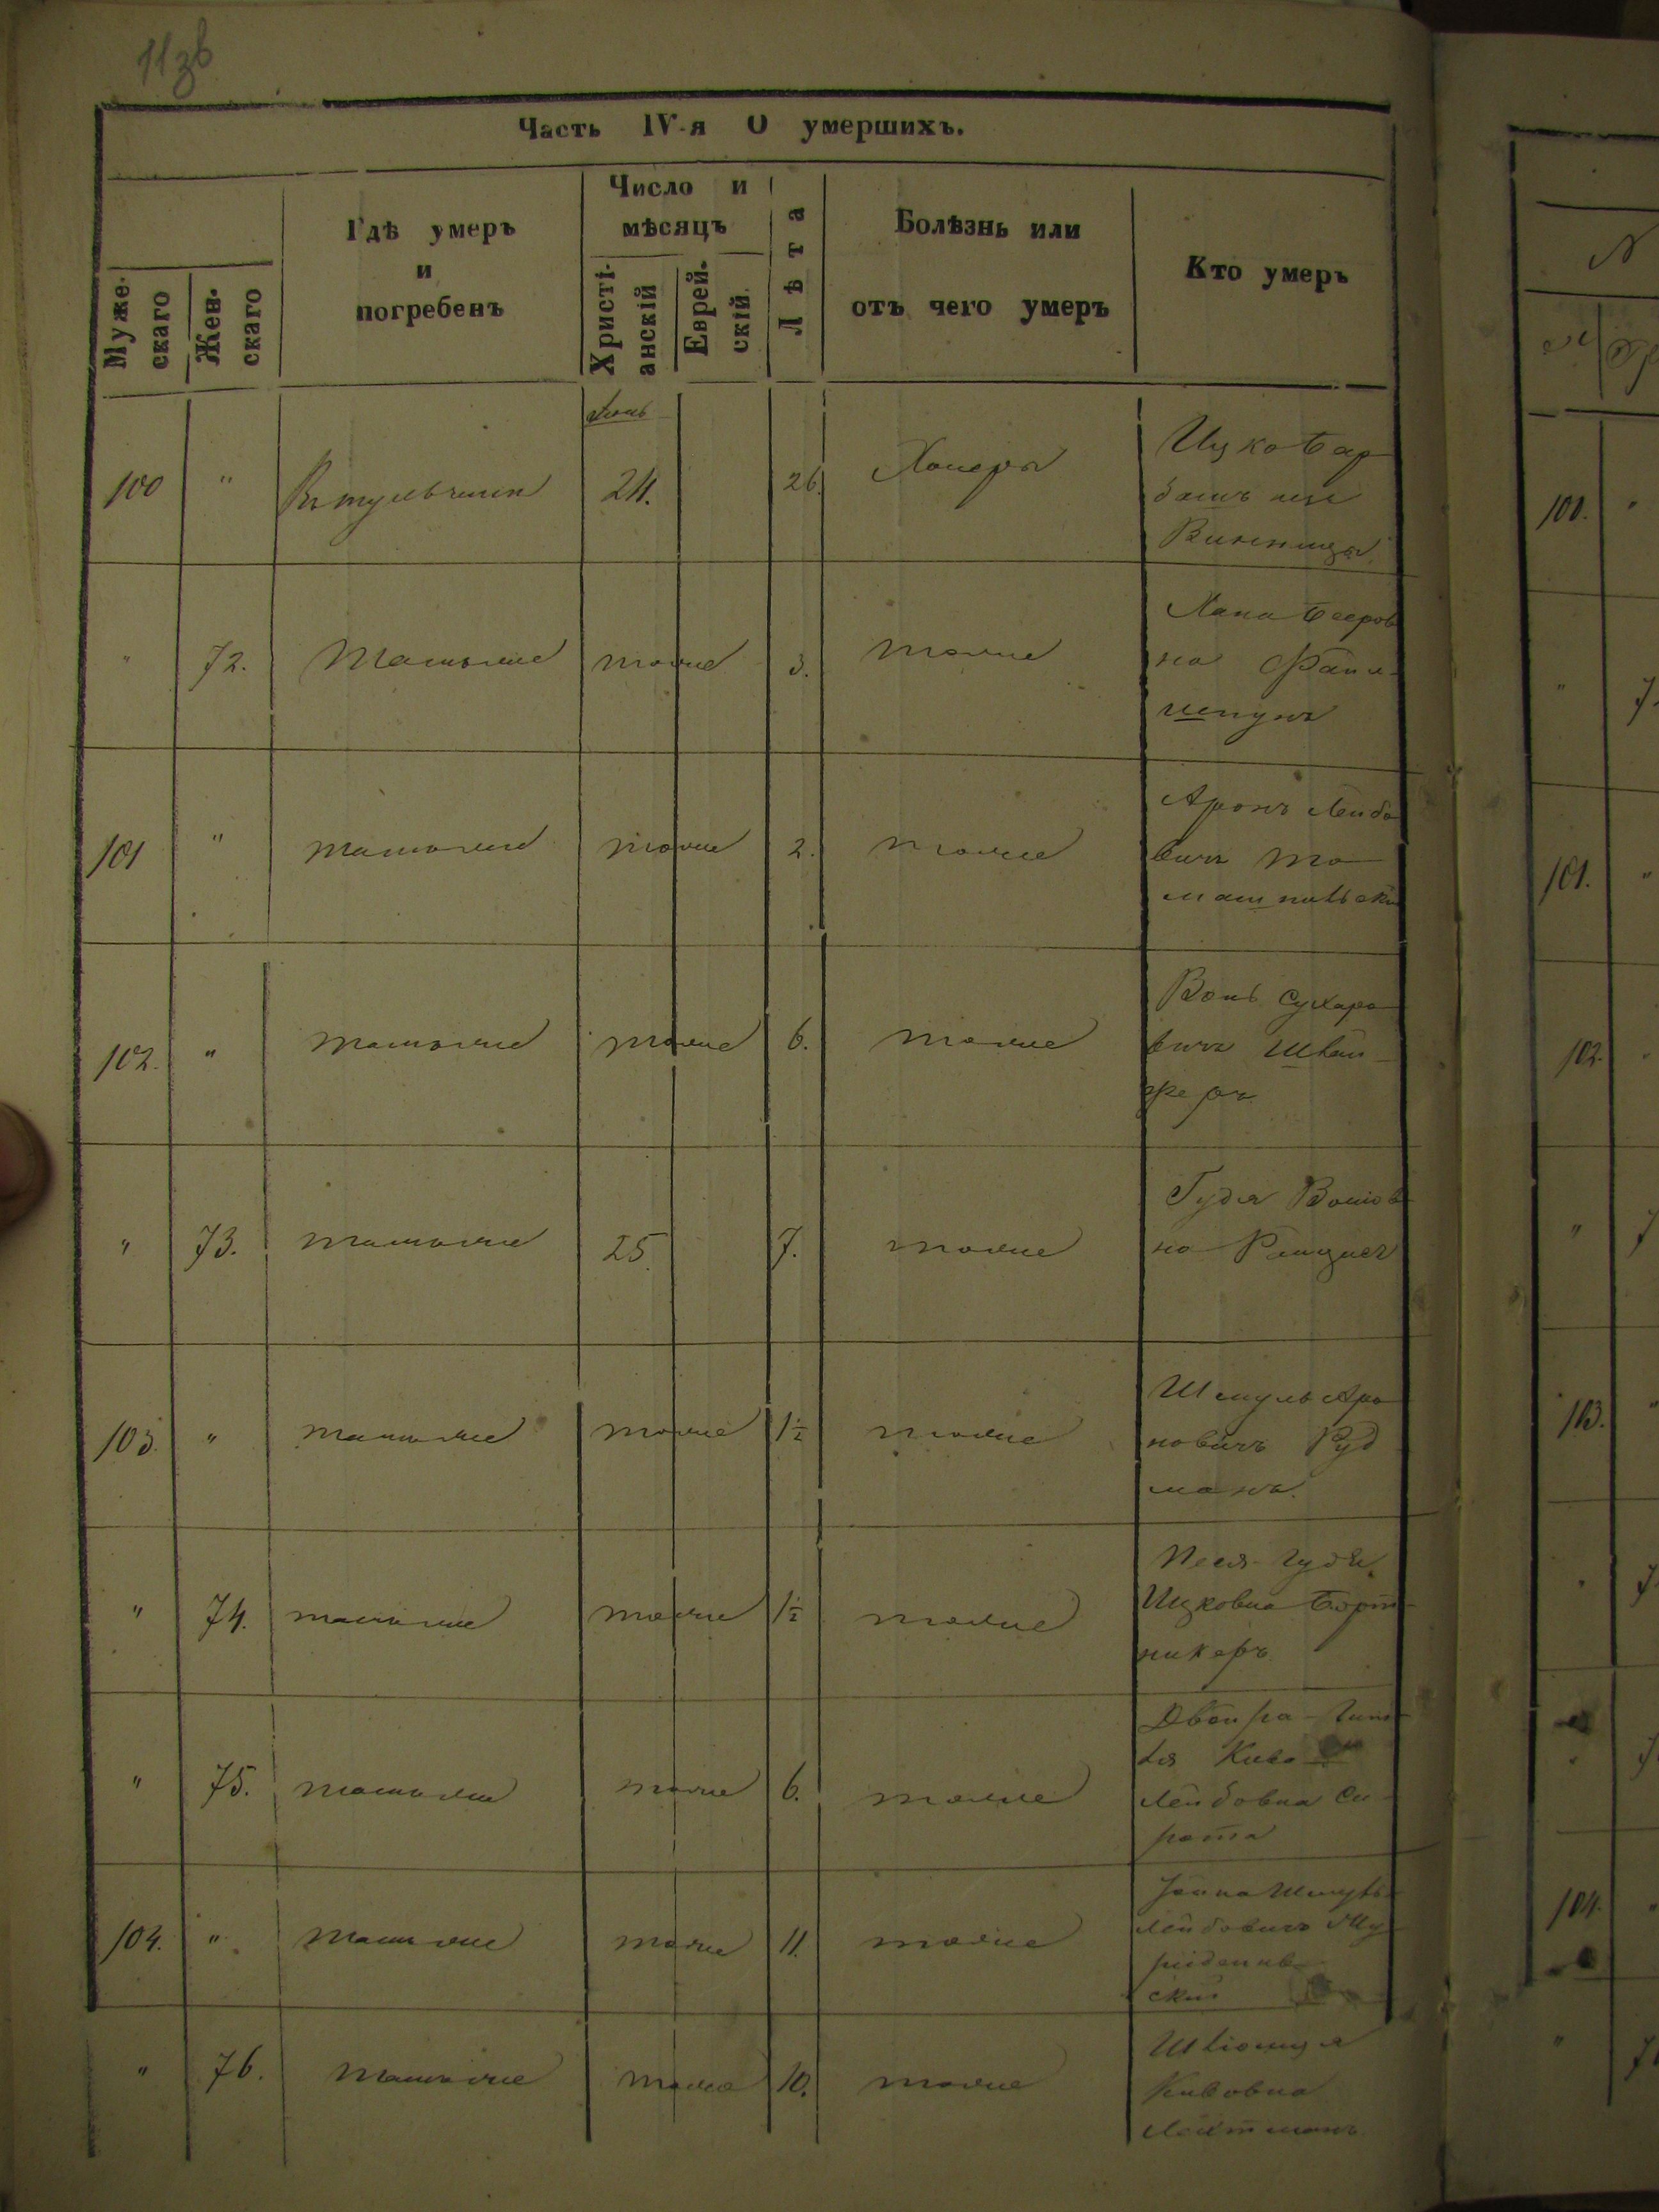 113 в
Часть IV-я О умершихъ.
Муже-скаго
Жен-скаго
Гдѣ умеръ
и
погребенъ
Число и
мѣсяцъ
Христі-анскій
Еврей-скій
Лѣта
Болѣзнь или
отъ чего умеръ
Кто умеръ
100 " Въ тульчинѣ 24. 26. Холеры
Ицко Бар
башъ изъ
Винницы
" 72. тамъ же тоже 3. тоже
Хана Беров
на
101 " тамъ же тоже 2. тоже
Аронъ Лейбо
вичъ То
машпольскій
102. " тамъ же тоже 6. тоже
вичъ Швай
геръ
" 73. тамъ же 25. 7. тоже
Гудя
на
103. " тамъ же тоже 1½ тоже
Шмуль Аро
новичъ Руд
манъ.
" 74. тамъ же тоже 1½ тоже
Песя-Гудя
Ицковна Борт
никеръ
" 75. тамъ же тоже 6. тоже
Двойра-Гит
ля Кива
Лейбовна Си
рота
104. " тамъ же тоже 11. тоже
Лейбовичъ
скій
" 76. тамъ же тоже 10. тоже
Кивовна
100. "
" 7
101. "
102. "
" 7
103. "
" 7
" 7
104. "
" 7